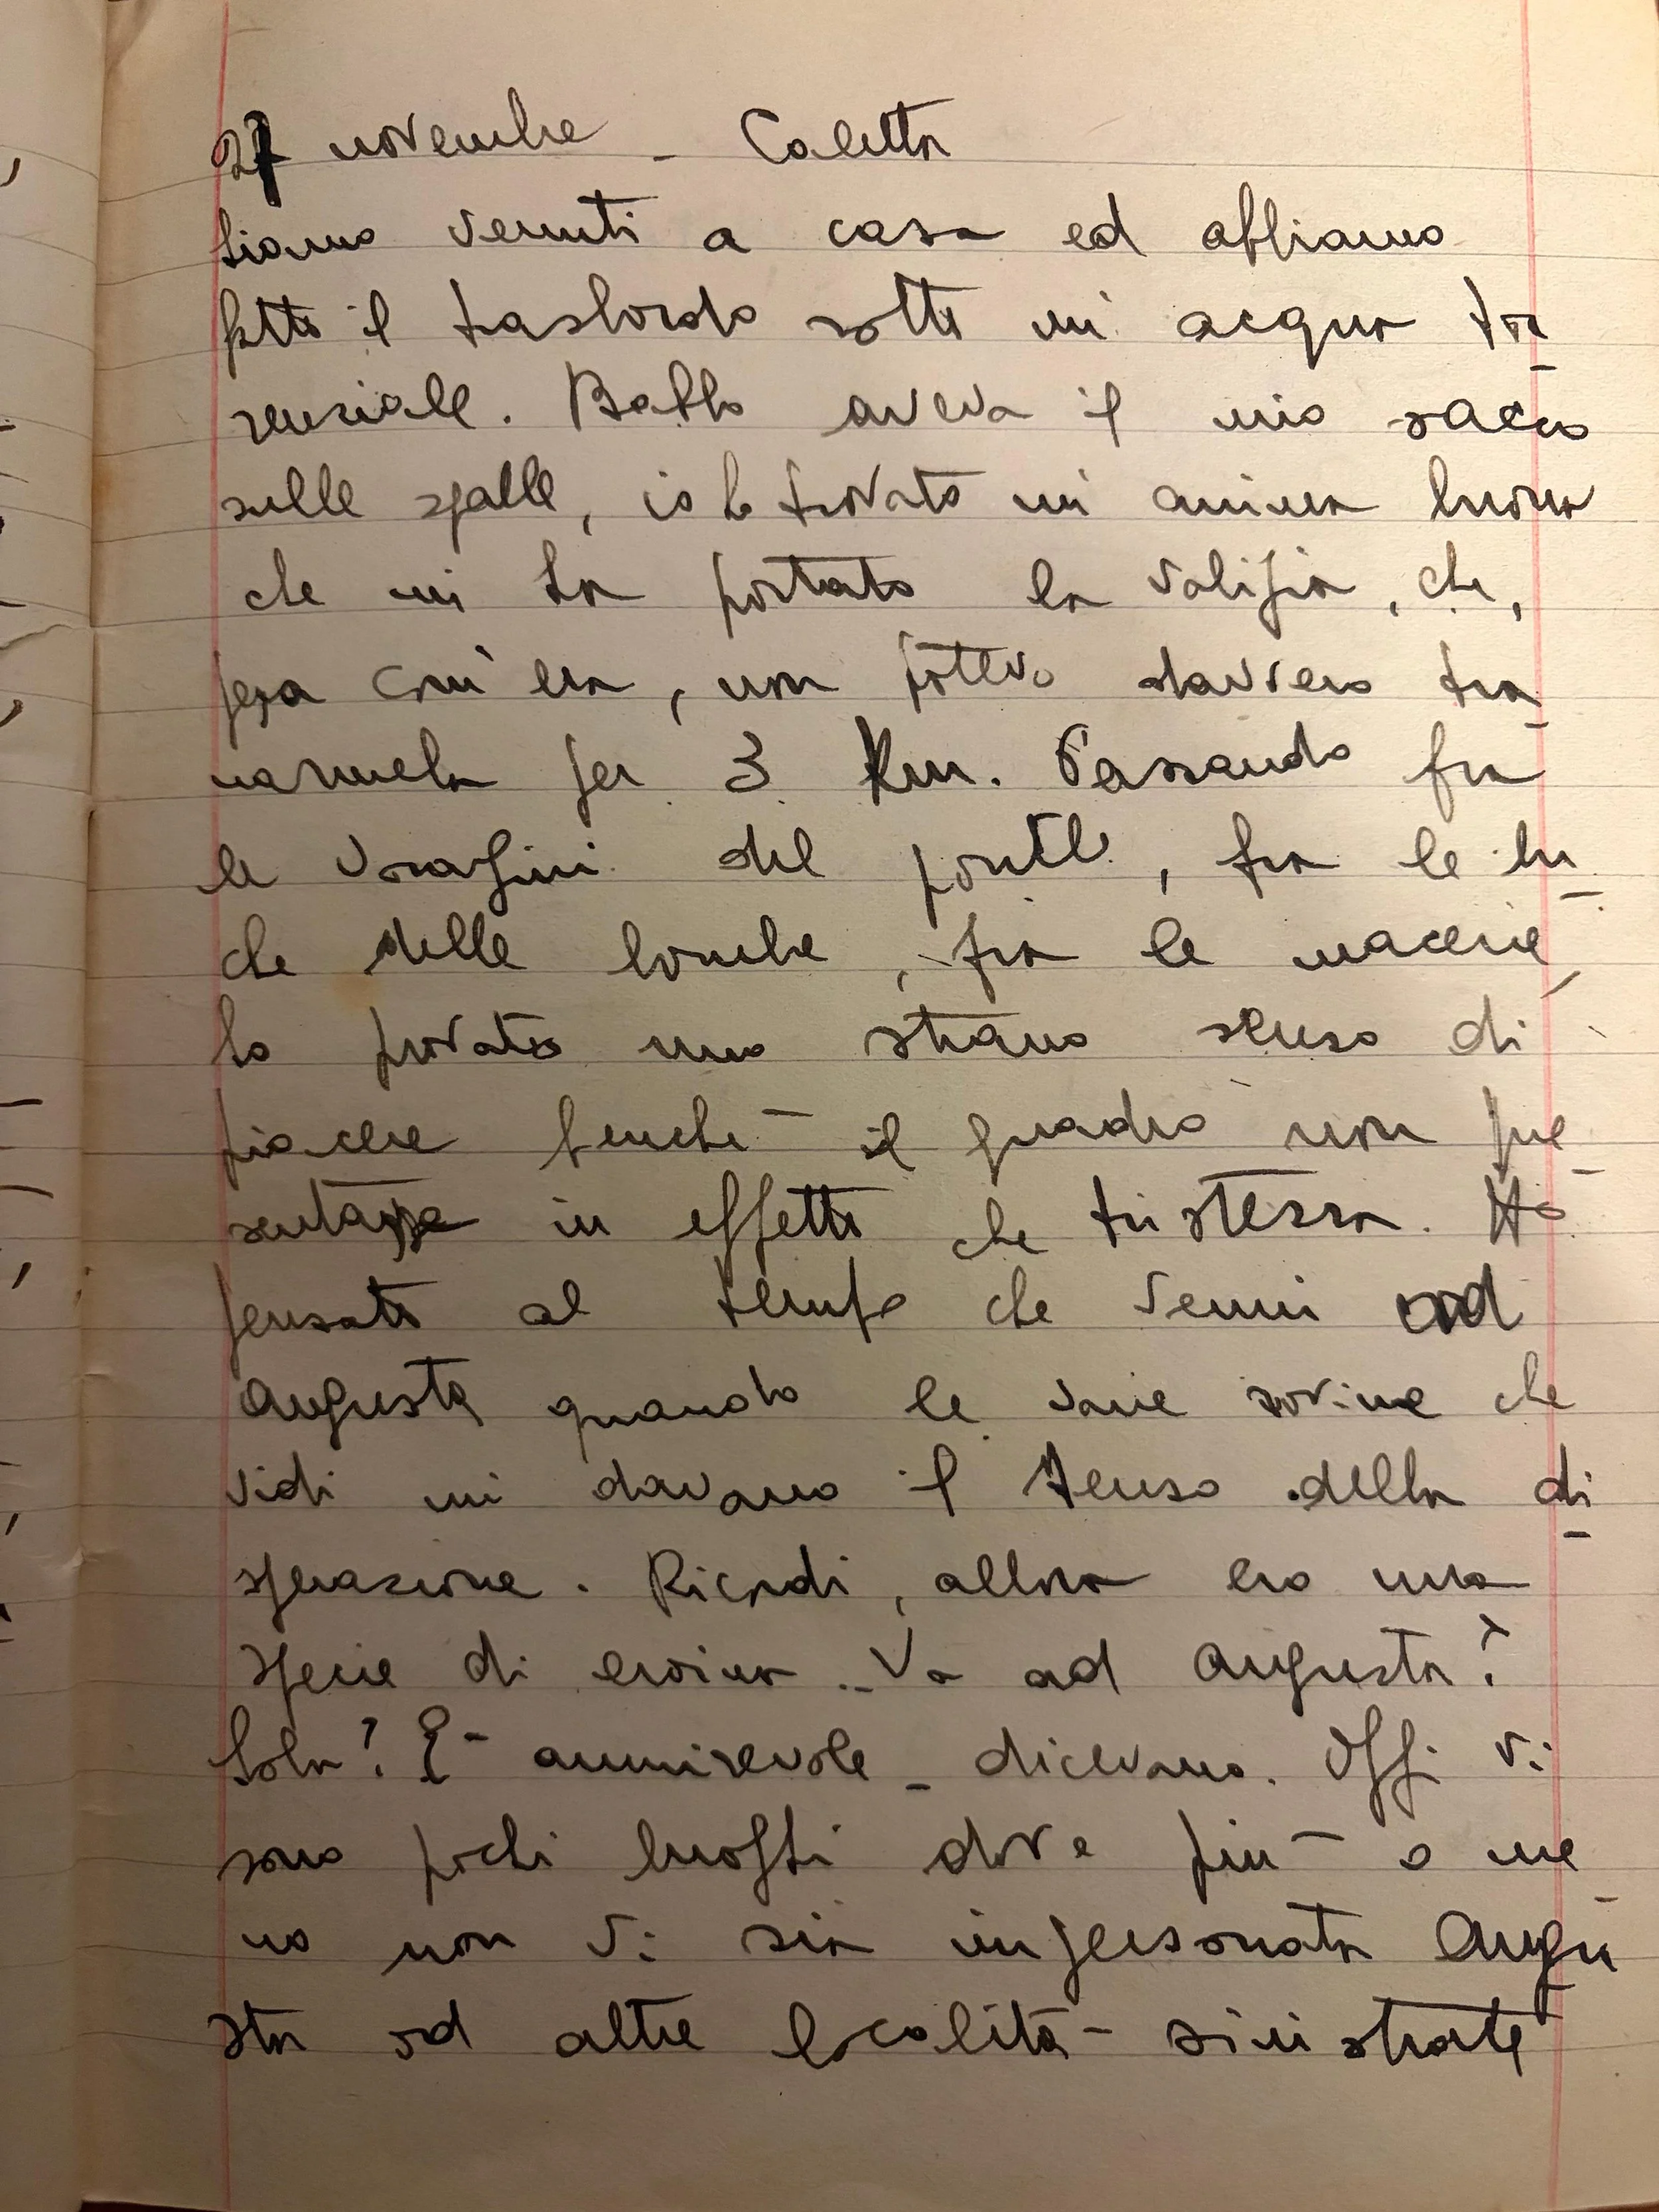 27 novembre - Caletta
Siamo venuti a casa ed abbiamo
fatto il trasbordo sotto un' acqua tor-
renziale. Babbo aveva il mio sacco
sulle spalle, io ho trovato un' anima buona
che mi ha portato la valigia, che,
piena com' era, non potevo davvero tra-
narmela per 3 Km. Passando fra
le voragini del ponte, fra le bu-
che delle bombe, fra le macerie,
ho provato uno strano senso di
piacere benchè il quadro non pre-
sentasse in effetto che tristezza. Ho
pensato al tempo che venni ad
Augusta quando le varie rovine che
vidi mi davano il senso della di-
sperazione. Ricordi, allora ero una
specie di eroina .. Va ad Augusta?
Sola? È ammirevole - dicevano. Oggi vi
sono pochi luoghi dove più o me-
no non vi sia impersonata Augu-
sta od altre località sinistrate